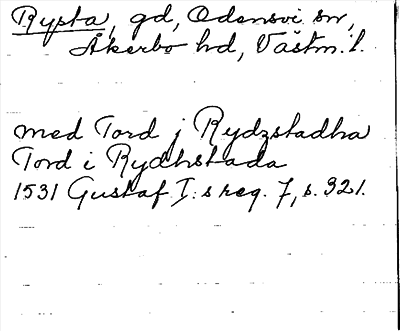 Rysta, gd, Odensvi sn,
Åkerbo hd, Västm. l.
med Tord j Rydzstadha
Tord i Rydhstada
1531 Gustaf I:s reg. 7, s. 321.